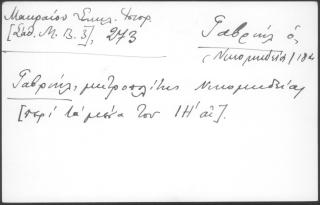 Μακραίου Υπομ. Ιστορ.
[Σάθ. Μ. Β. 3], 273
Γαβριήλ ὁ,
(Νικομηδείας) 18α.
Γαβριήλ, μητροπολίτης Νικομηδείας
[περί τά μέσα του ΙΗ' αἰ].